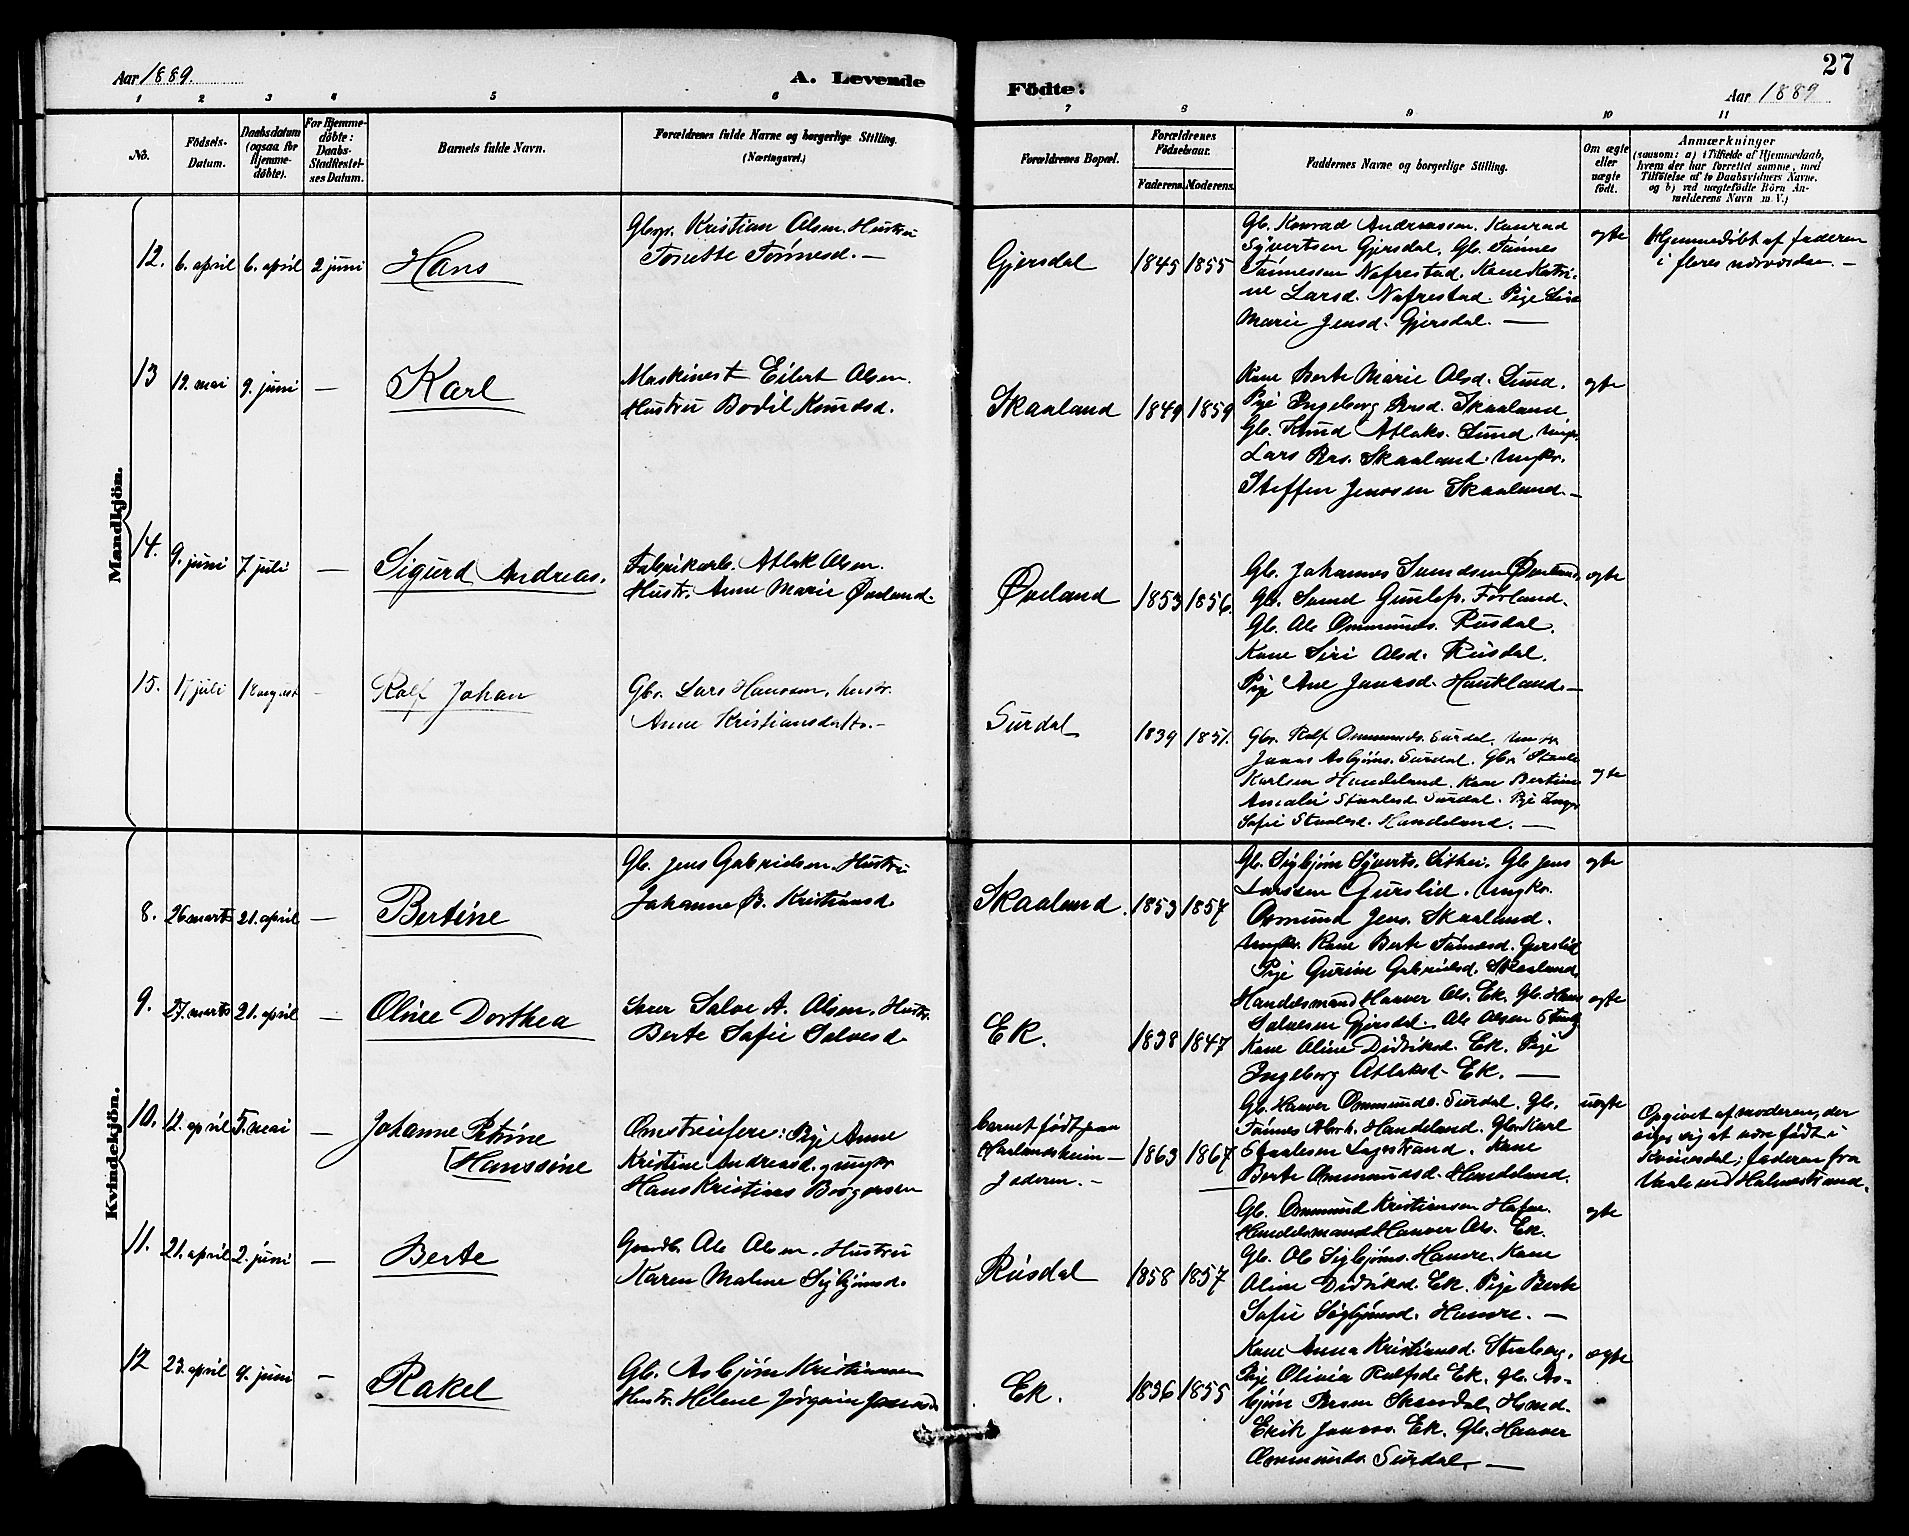 Aar 1889.
A. Levende
Födte:
27
Aar 1889
1 2 3 4 5 6 7 8 9 10 11
No.
Födsels-
Datum.
Daabsdatum
(ogsaa for
Hjemme-
döbte).
For Hjemme-
döbte:
Daabs-
Stadfæstel-
ses Datum.
Barnets fulde Navn.
Forældrenes fulde Navne og borgerlige Stilling.
(Næringsvei.)
Forældrenes Bopæl.
Forældrenes
Födselsaar.
Faderens. Moderens.
Faddernes Navne og borgerlige Stilling.
Om ægte
eller
uægte
födt.
Anmærkninger
(saasom: a) i Tilfælde af Hjemmedaab,
hvem der har forrettet samme, med
Tilföielse af to Daabsvidners Navne,
og b) ved uægtefödte Börn An-
melderens Navn m. V.)
Mandkjön.
12. 6. april 6. april 2 juni Hans
Kristian Olsen. Hustru
Tonette Tønnesd. —
Gjersdal 1845 1855
Gb. Konrad Andreassen. Konrad
Syvertsen Gjersdal. Gb. Tønnes
Tønnessen Nafrestad. Kone Katri-
ne Larsd. Nafrestad. Pige
Marie Jensd. Gjersdal. —
ægte
Hjemmedøbt af faderen
i fleres nærværelse. —
13 19. mai 9. juni — Karl
Maskinest Eilert Olsen.
Hustru Bodil Knudsd.
Skaaland 1849 1859
Kone Berte Marie Olsd. Lund.
Pige Ingeborg Persd. Skaaland
Gb. Knud Atlaks. Lund. Ungkr.
Lars Pers. Skaaland. Ungkr.
Steffen Jenssen Skaaland. —
ægte
14. 9. juni 7. juli — Sigurd Andreas.
Fabrikarb. Atlak Olsen.
Hustr. Anne Marie Øveland.
Øveland 1853 1856.
Gb. Johannes Svendsen Øveland.
Gb. Svend Gunlefs. Førland.
Gb. Ole Ommunds. Rusdal.
Kone Siri Olsd. Rusdal.
Pige Ane Jonasd. Haukland. —
ægte
15. 17 juli 18 august — Rolf Johan
Gbr. Lars Hanssen, hustr.
Anne Kristiansdatter. —
Surdal 1839 1851.
Gbr. Rolf Ommunds. Surdal.
Jonas Asbjørns. Surdal. Gbr. Staale
Karlsen Handeland. Kone Bertine
Amalie Staalesd. Surdal. Pige
Sofie Staalesd. Handeland. —
ægte
Kvindekjön.
8. 26 marts 21. april — Bertine
Gb. Jens Gabrielsen. Hustru
Johanne B. Kristiansd.
Skaaland. 1853 1857
Gb. Sigbjørn Syverts. Gb Jens
Larssen Gurslid. Ungkr.
Osmund Jens. Skaaland.
Ungkr. Kone Berte Tønnesd. Gurslid
Pige Gurine Gabrielsd. Skaaland.
ægte
9. 27. marts 21. april — Oline Dorthea
Salve A. Olsen. Hustr.
Berte Sofie Salvesd.
Ek. 1838 1847
Handelsmand Haaver Ols. Ek. Gb. Hans
Salvesen Gjersdal. Ole Olsen
Kone Oline Didriksd. Ek. Pige
Ingeborg Atlaksd. Ek. —
ægte
10. 12. april 5. mai — Johanne Petrine
[Hanssine
Omstreifere: Pige Anne
Kristine Andreasd. ungkr
Hans Kristians Borgersen
barnet født paa
Jæderen. —
1863 1867
Gb. Haaver Ommunds. Surdal. Gb.
Tønnes Handeland. Gbr. Karl
Staalesen Kone
Berte Ommundsd. Handeland.
uægte
Opgivet af moderen, der
siges sig at være født i
Kvinesdal; faderen fra
ved Holmestrand.
11. 21. april 2. juni — Berte
Gaardb. Ole Olsen. Hustru
Karen Malene Sigbjørnsd.
Rusdal 1858 1857
Gb. Ommund Kristiansen
Handelsmand Haaver Ols. Ek.
Gb. Ole Sigbjørns. Hamre. Kone
Oline Didriksd. Ek. Pige Berte
Sofie Sigbjørnsd. Hamre. —
ægte
12 23. april 9. juni — Rakel
Gb. Asbjørn Kristiansen
Hustr. Helene Jørgine
Ek. 1836 1855
Kone Anna Kristiansd.
Pige Olivia Rolfsd. Ek. Gb. As-
bjørn
Erik Ek. Gb. Haaver
Ommunds. Surdal. —
ægte